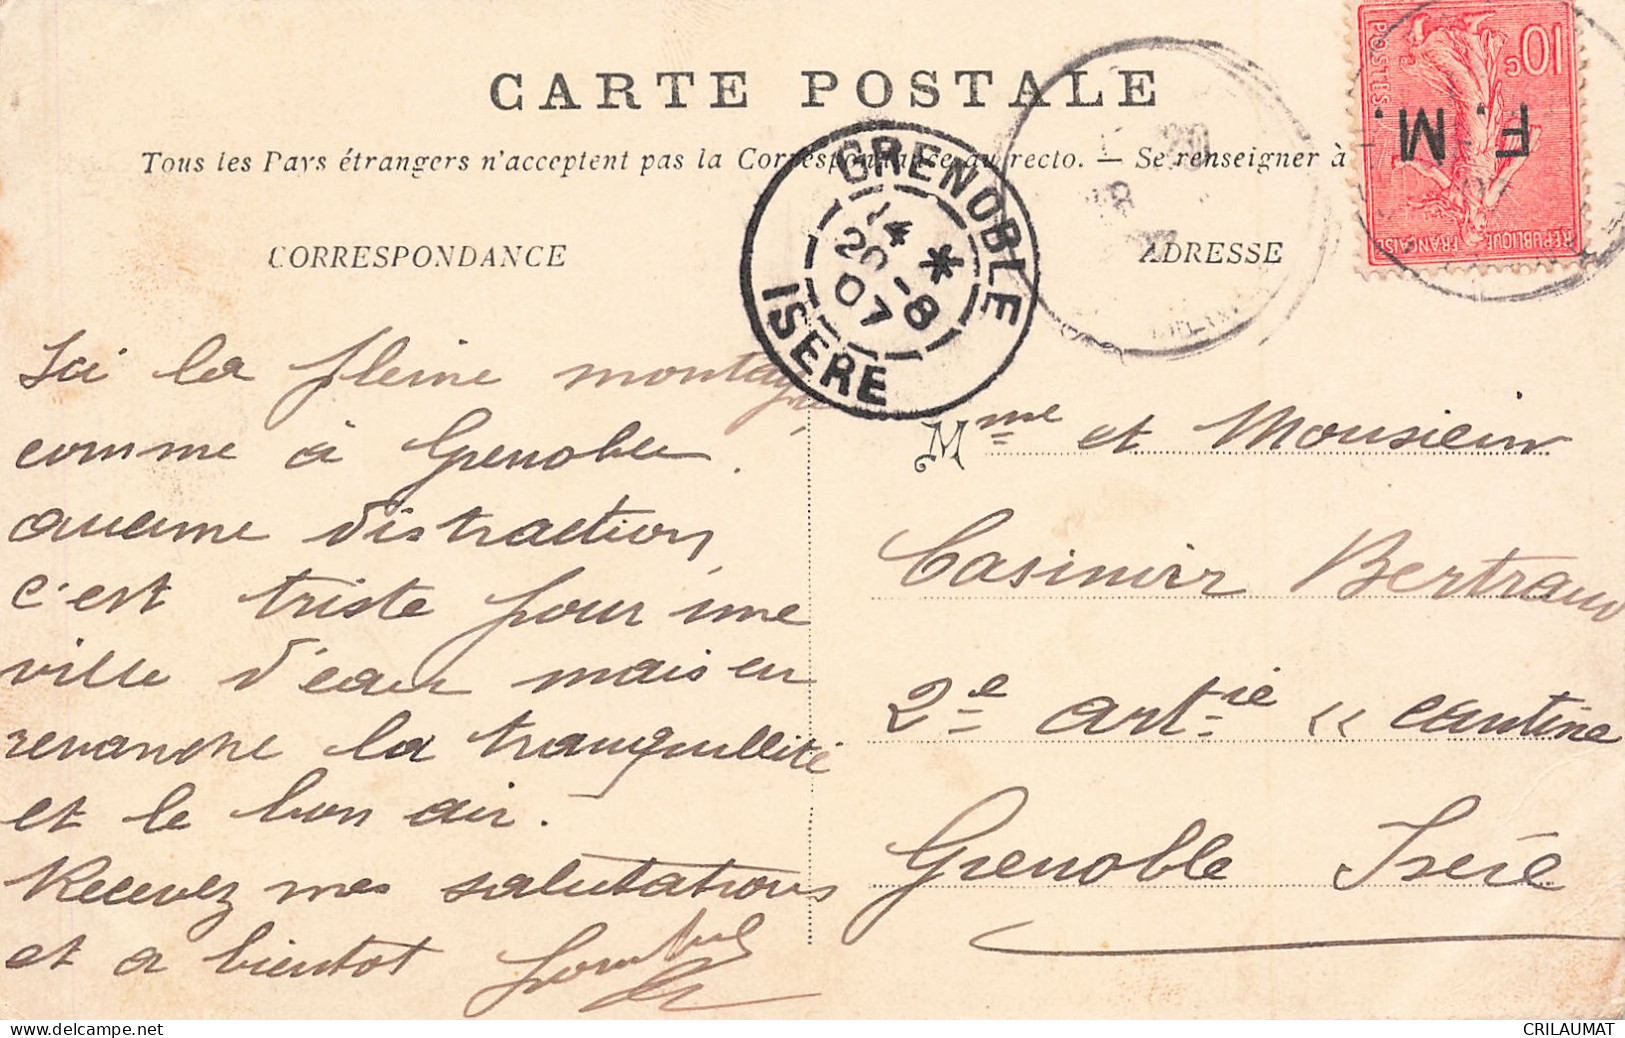 CARTE POSTALE
Tous les Pays étrangers n'acceptent pas la Correspondance au recto. — Se renseigner à
CORRESPONDANCE
ADRESSE
GRENOBLE
14 *
20-8
07
ISERE
10c
POSTES
F. M.
REPUBLIQUE FRANÇAISE
Ici la pleine montagne
comme à Grenoble.
aucune distraction,
c'est triste pour une
ville d'eau mais en
revanche la tranquillité
et le bon air.
Recevez mes salutations
et a bientot
Mme et Monsieur
Casimir Bertrand
2e artie « cantine
Grenoble Isère
CRILAUMAT